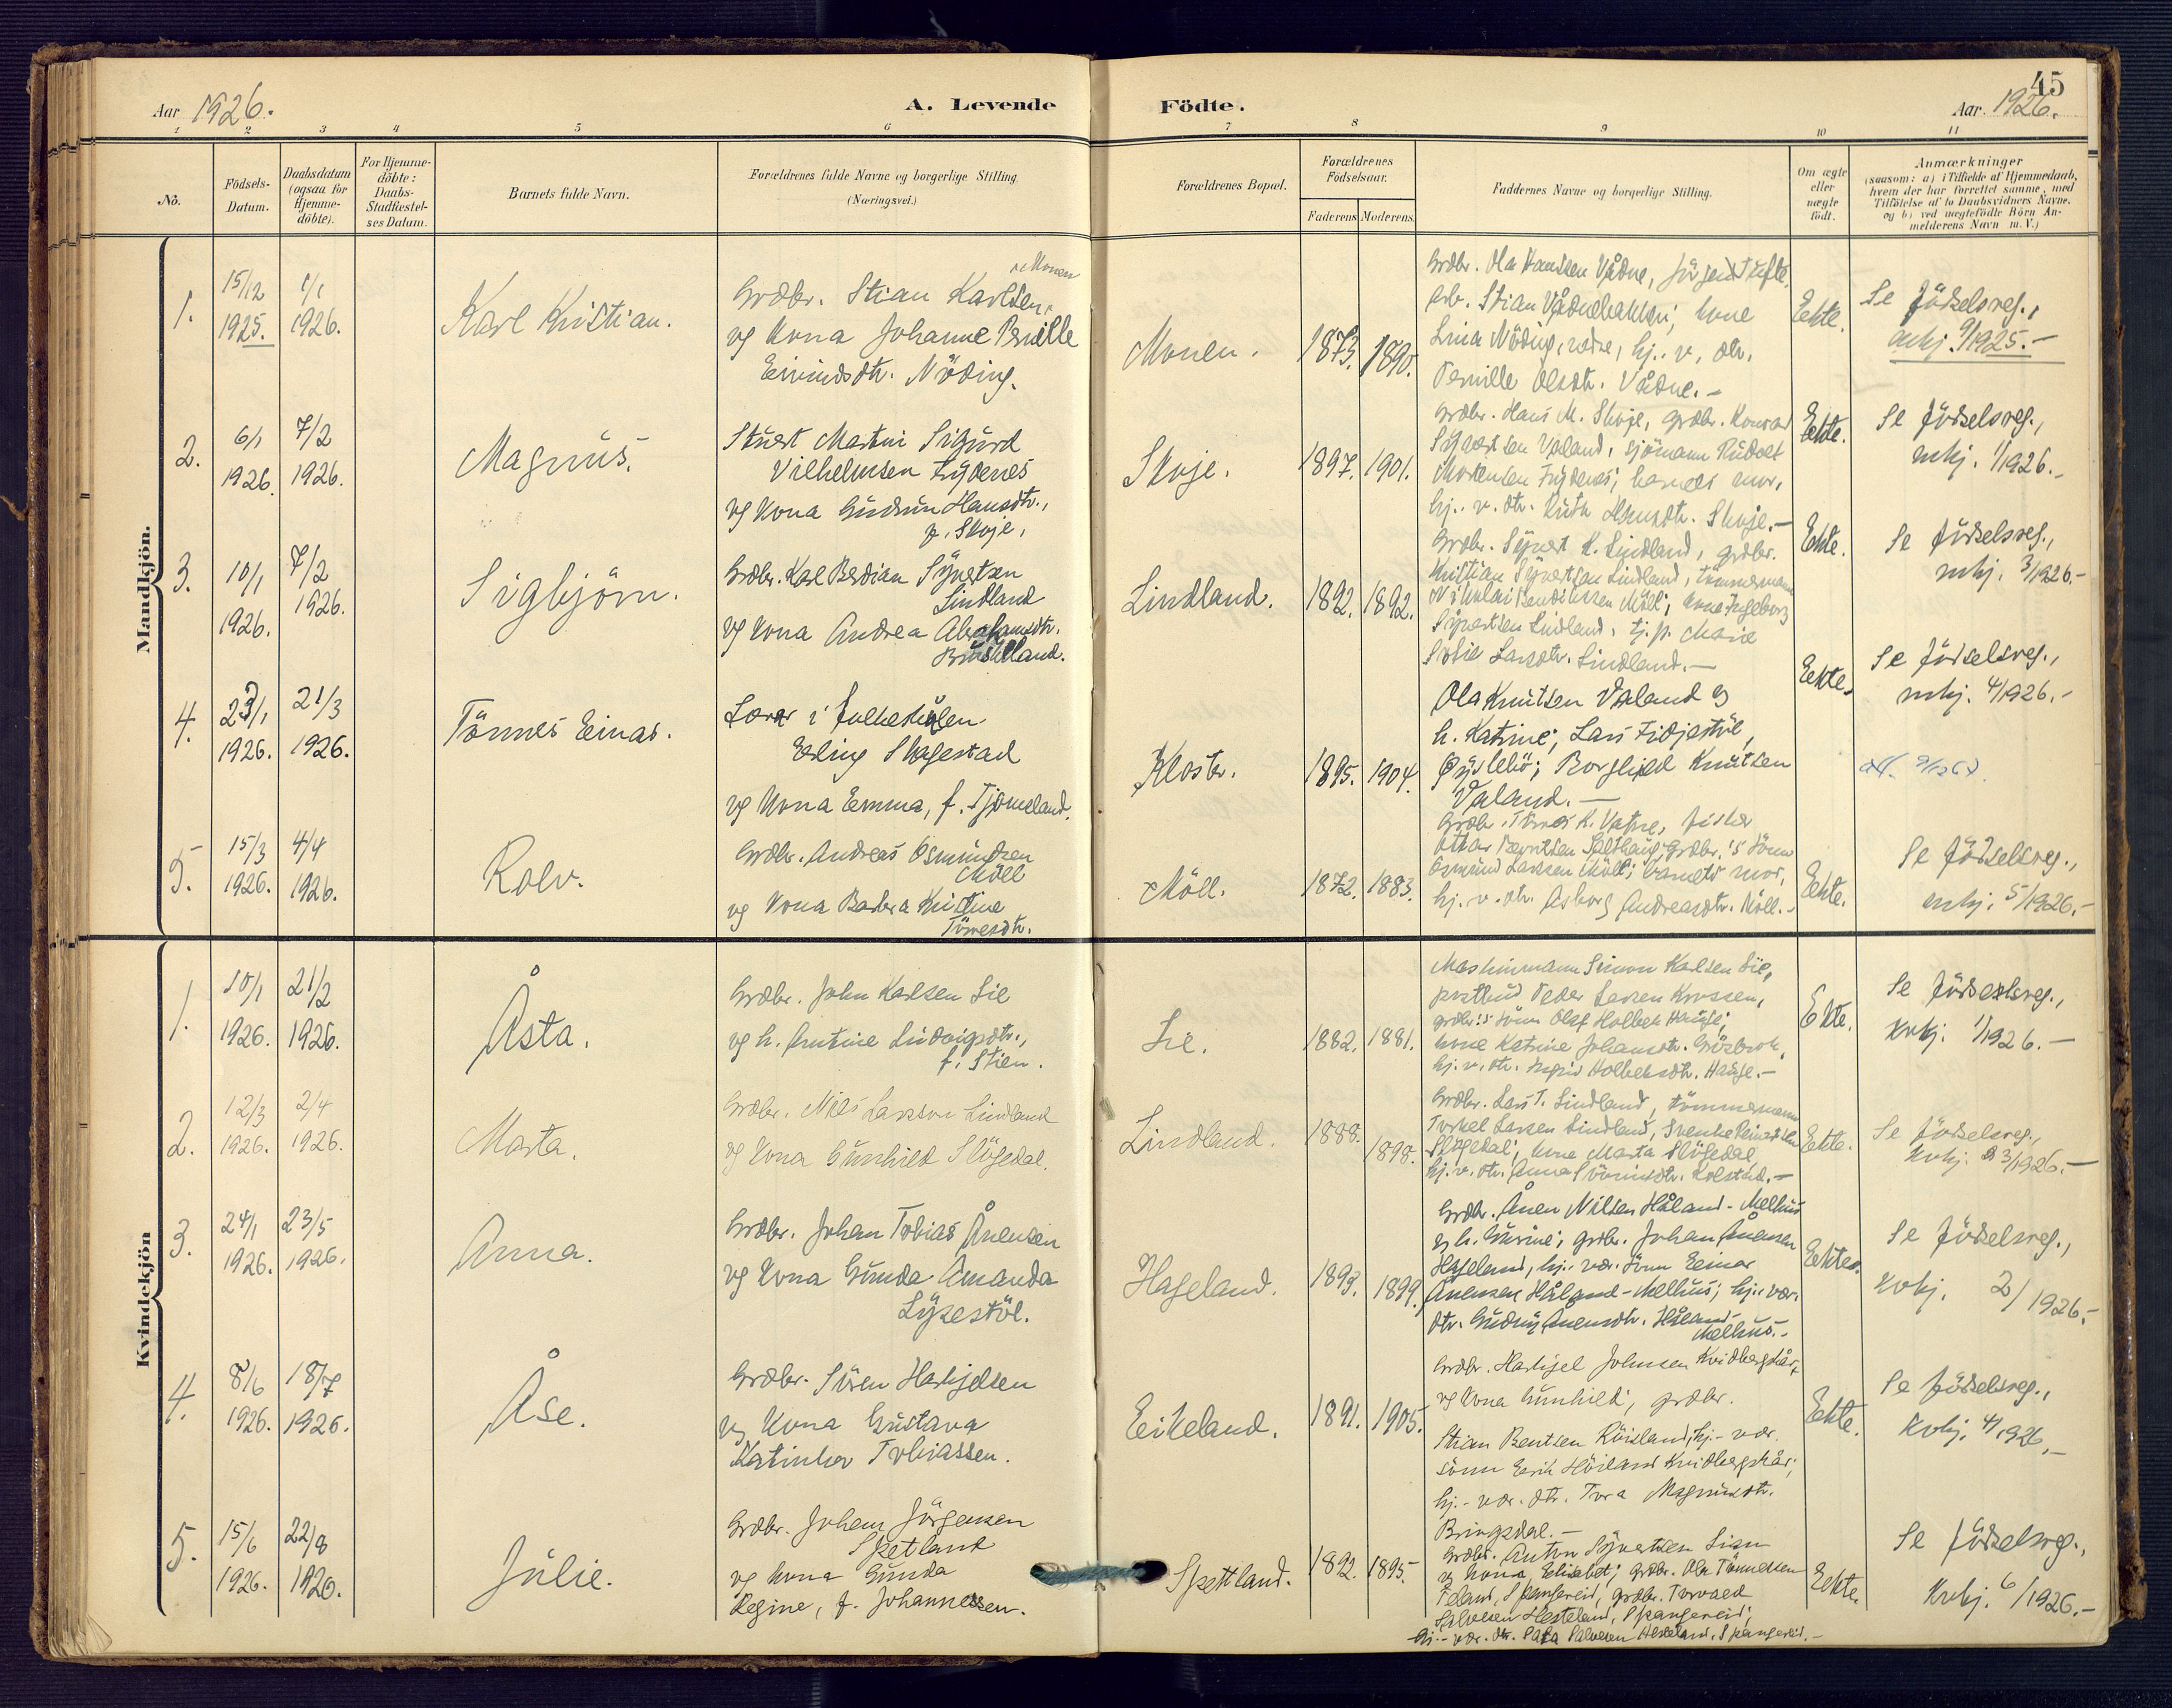 45
Aar 1926.
A. Levende Födte.
Aar. 1926.
1 2 3 4 5 6 7 8 9 10 11
No.
Födsels-Datum.
Daabsdatum (ogsaa for Hjemme-döbte).
For Hjemme-döbte: Daabs-Stadfæstel-ses Datum.
Barnets fulde Navn.
Forældrenes fulde Navne og borgerlige Stilling.
(Næringsvei.)
Forældrenes Bopæl.
Forældrenes Födselsaar.
Faderens Moderens.
Faddernes Navne og borgerlige Stilling.
Om ægte eller uægte födt.
Anmærkninger
(saasom: a) i Tilfælde af Hjemmedaab, hvem der har forrettet samme, med Tilföielse af to Daabsvidners Navne, og b) ved uægtefödte Börn An-melderens Navn m. V.)
Mandkjön.
1.
15/12 1925.
1/1 1926.
Karl Kristian.
Grdbr. Stian Karlsen, Monen
og kona Johanne Pernille
Eivindsdtr. Nöding.
Monen.
1873. 1890.
Grdbr. Ola Hansen Vådne, Jörgen Tufte,
arb. Stian Vådnebakken, kone
Lina Nöding, hj. v. dtr.
Pernille Olsdtr. Vådne.-
Ekte.
Se födselsreg.,
mkj. 9/1925.-
2.
6/1 1926.
7/2 1926.
Magnus.
Stuert Martin Sigurd
Vilhelmsen
og kona Gudrun Hansdtr.,
f. Skoje.
Skoje.
1897. 1901.
Grdbr. Hans M. Skoje, grdbr. Konrad
Valand, sjömann Rudolf
Mortensen barnets mor,
hj. v. dtr. Ruth Hansdtr. Skoje.-
Ekte.
Se födselsreg.,
mkj. 1/1926.-
3.
10/1 1926.
7/2 1926.
Sigbjörn.
Grdbr. Karl Berdian Syvertsen
Lindland
og kona Andrea Abrahamsdtr.
Lindland.
1892. 1892.
Grdbr. Syvert K. Lindland, grdbr.
Kristian Syvertsen Lindland, tömmermann
Nikolai Bendiksen Möll; kone Ingeborg
Syvertsen Lindland, tj.p. Marie
Sofie Larsdtr. Lindland.-
Ekte.
Se födselsreg.,
mkj. 3/1926.-
4.
23/1 1926.
21/3 1926.
Tönnes Einar.
Lærer i folkeskolen
Erling Skagestad
og kona Emma, f. Tjomeland.
Kloster.
1895. 1904.
Ola Knutsen Valand og
h. Katrine; Lars Fidjestöl,
Öyslebö; Borghild Knutsen
Valand.-
Ekte.
Se födselsreg.,
mkj. 4/1926.-
5.
15/3 1926.
4/4 1926.
Rolv.
Grdbr. Andreas Osmundsen
Möll
og kona Barbra Kristine
Tönnesdtr.
Möll.
1872. 1883.
Grdbr. Tönnes K. Vatne, fisker
Ottar Berntsen grdbr.'s sönn
Osmund Larsen Möll; barnets mor,
hj. v. dtr. Asborg Andreasdtr. Möll.-
Ekte.
Se födselsreg.,
mkj. 5/1926.-
Kvindekjön
1.
10/1 1926.
21/2 1926.
Åsta.
Grdbr. John Karlsen Lie
og h. Antine Ludvigsdtr.,
f. Stien.
Lie.
1882. 1881.
Maskinmann Simon Karlsen Lie,
postbud Peder Larsen Krossen,
grdbr.'s sönn Olaf Holbek Hauge;
kone Katrine Johansdtr.
hj. v. dtr. Ingrid Holbeksdtr. Hauge.-
Ekte.
Se födselsreg.,
kvkj. 1/1926.-
2.
12/3 1926.
2/4 1926.
Marta.
Grdbr. Nils Larsson Lindland
og kona Gunhild Slögedal.
Lindland.
1888. 1898.
Grdbr. Lars T. Lindland, tömmermann
Torkel Larsen Lindland, Svenke
Slögedal; kone Marta Slögedal
hj. v. dtr. Anna
Ekte.
Se födselsreg.,
kvkj. 3/1926.-
3.
24/1 1926.
23/5 1926.
Anna.
Grdbr. Johan Tobias Ånensen
og kona Gunda Amanda
Lykestöl.
Hageland.
1893. 1899.
Grdbr. Ånen Nilsen Håland-Melhus
og h. Gurine; grdbr. Johan Ånensen
Hageland, hj. vær. sönn Einar
Ånensen Håland-Melhus; hj. vær.
dtr. Gudny Ånensdtr. Håland-
Melhus.-
Ekte.
Se födselsreg.,
kvkj. 2/1926.-
4.
8/6 1926.
18/7 1926.
Åse.
Grdbr. Sören Hartgelsen
og kona Gustava
Katinka Tobiassen.
Eikeland.
1891. 1905.
Grdbr. Hartgel Johnsen Kvidbergskår
og kona Gunhild; grdbr.
Stian Bentsen Röisland; hj.-vær.
sönn Eirik Höiland Kvidbergskår;
hj.-vær. dtr. Tora Magnusdtr.
Bringsdal.-
Ekte.
Se födselsreg.,
kvkj. 4/1926.-
5.
15/6 1926.
22/8 1926.
Julie.
Grdbr. Johan Jörgensen
Spetland
og kona Gunda
Regine, f. Johannessen.
Spettland.
1892. 1895.
Grdbr. Anton Syvertsen Lian
og kona Elisabet; grdbr. Ola Tönnessen
Spangereid, grdbr. Torvald
Salvesen Hesteland, Spangereid;
hj.-vær. dtr. Salvesen Hesteland, Spangereid.-
Ekte.
Se födselsreg.,
kvkj. 6/1926.-